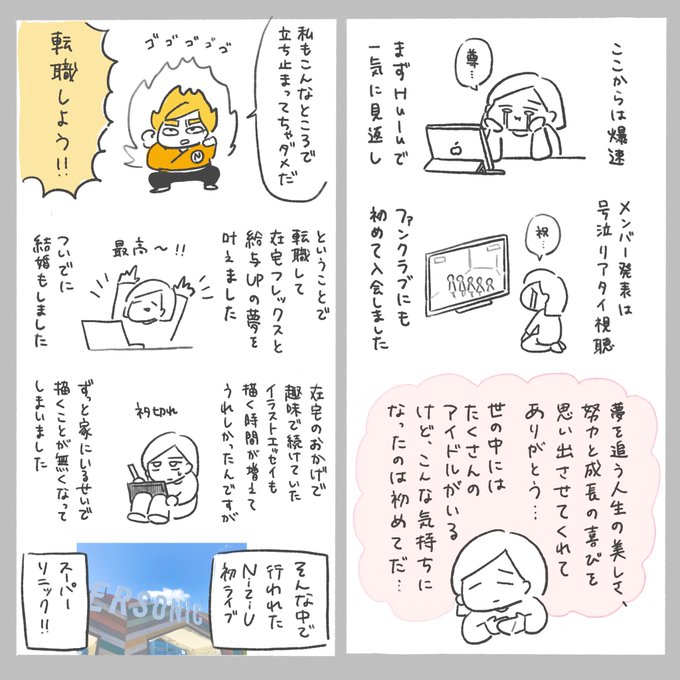 ここからは爆速
まずHuluで
一気に見返し
尊…
メンバー発表は
号泣リアタイ視聴
祝…
ファンクラブにも
初めて入会しました
夢を追う人生の美しさ、
努力と成長の喜びを
思い出させてくれて
ありがとう…
世の中には
たくさんの
アイドルがいる
けど、こんな気持ちに
なったのは初めてだ…
私もこんなところで
立ち止まってちゃダメだ
ゴゴゴゴゴ
N
転職しよう!!
ということで
転職して
在宅フレックスと
給与UPの夢を
叶えました
最高〜!!
ついでに
結婚もしました
在宅のおかげで
趣味で続けていた
イラストエッセイも
描く時間が増えて
うれしかったんですが
ネタ切れ
ずっと家にいるせいで
描くことが無くなって
しまいました
そんな中で
行われた
NiziU
初ライブ
ERSONIC
スーパー
ソニック!!